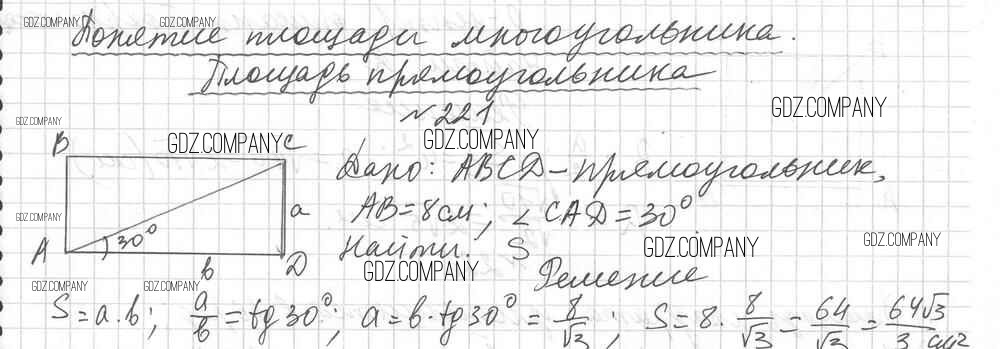 GDZ.COMPANY GDZ.COMPANY
Понятие площади многоугольника.
GDZ.COMPANY
Площадь прямоугольника
№221
GDZ.COMPANY
GDZ.COMPANY
B GDZ.COMPANY C GDZ.COMPANY
Дано: ABCD – прямоугольник,
a AB = 8 см; ∠CAD = 30°
GDZ.COMPANY
A 30° b D Найти: S GDZ.COMPANY GDZ.COMPANY
GDZ.COMPANY Решение
GDZ.COMPANY GDZ.COMPANY
S = a·b; a/b = tg 30°, a = b·tg 30° = 8/√3; S = 8·8/√3 = 64/√3 = 64√3/3 см²